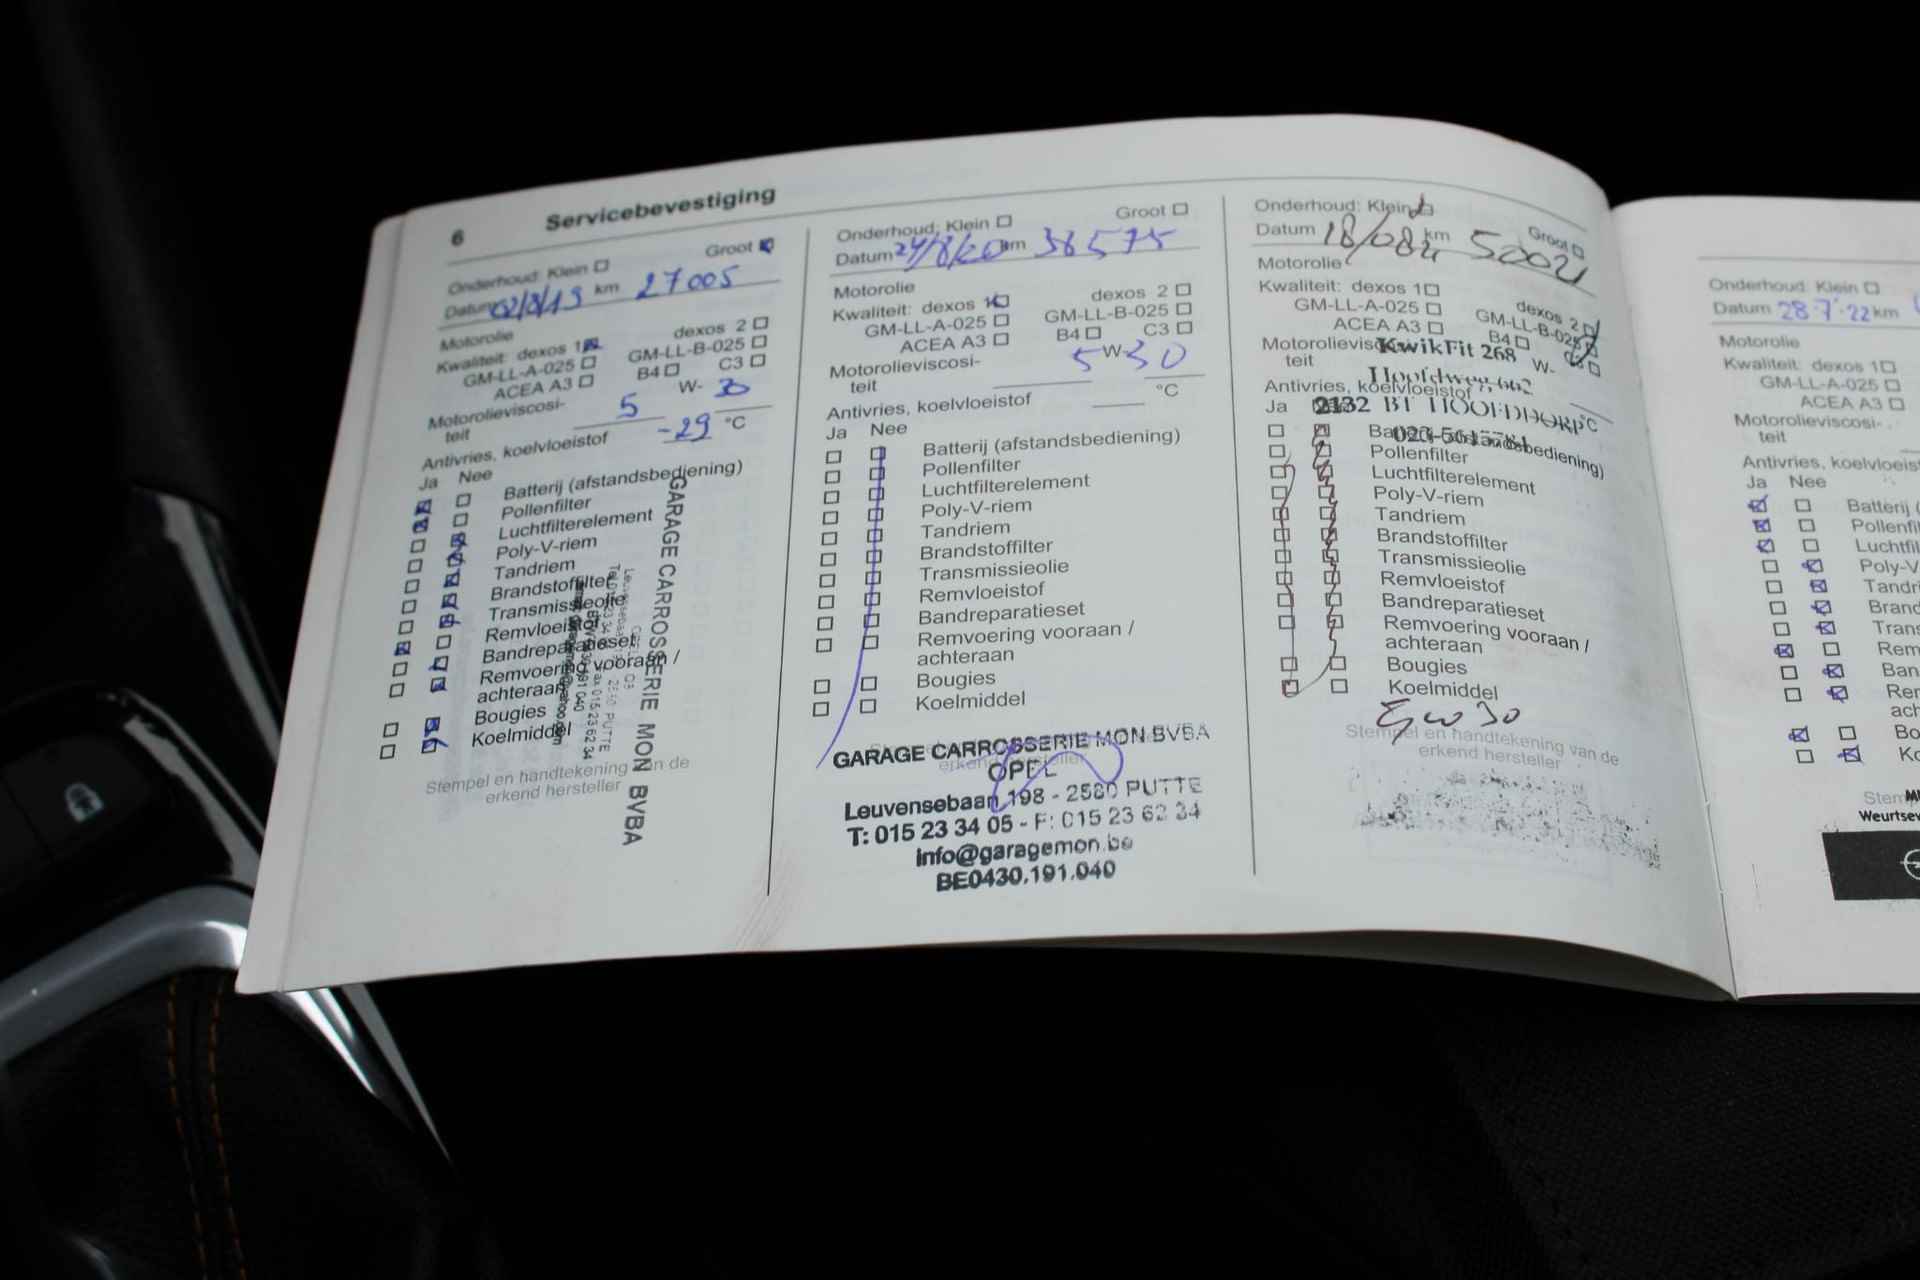 6 Servicebevestiging
Onderhoud: Klein Groot
Datum 02/8/19 km 27005
Motorolie
Kwaliteit: dexos 1 dexos 2
GM-LL-A-025 GM-LL-B-025
ACEA A3 B4 C3
Motorolieviscosi-
teit 5 W- 30
Antivries, koelvloeistof -29 °C
Ja Nee
Batterij (afstandsbediening)
Pollenfilter
Luchtfilterelement
Poly-V-riem
Tandriem
Brandstoffilter
Transmissieolie
Remvloeistof
Bandreparatieset
Remvoering vooraan /
achteraan
Bougies
Koelmiddel
Stempel en handtekening van de
erkend hersteller
GARAGE CARROSSERIE MON BVBA
Onderhoud: Klein Groot
Datum 24/8/20 km 36575
Motorolie
Kwaliteit: dexos 1 dexos 2
GM-LL-A-025 GM-LL-B-025
ACEA A3 B4 C3
Motorolieviscosi-
teit 5 W- 30
Antivries, koelvloeistof °C
Ja Nee
Batterij (afstandsbediening)
Pollenfilter
Luchtfilterelement
Poly-V-riem
Tandriem
Brandstoffilter
Transmissieolie
Remvloeistof
Bandreparatieset
Remvoering vooraan /
achteraan
Bougies
Koelmiddel
erkend hersteller
GARAGE CARROSSERIE MON BVBA
OPEL
Leuvensebaan 198 - 2580 PUTTE
T: 015 23 34 05 - F: 015 23 62 34
info@garagemon.be
BE0430.191.040
Onderhoud: Klein Groot
Datum km
Motorolie
Kwaliteit: dexos 1 dexos 2
GM-LL-A-025 GM-LL-B-025
ACEA A3 B4
teit W-
KwikFit 268
Hoofdweg
Antivries, koelvloeistof °C
2132 BT HOOFDDORP
Ja
Pollenfilter
Luchtfilterelement
Poly-V-riem
Tandriem
Brandstoffilter
Transmissieolie
Remvloeistof
Bandreparatieset
Remvoering vooraan /
achteraan
Bougies
Koelmiddel
Stempel en handtekening van de
erkend hersteller
Onderhoud: Klein
Datum 28-7-22 km
Motorolie
Kwaliteit: dexos 1
GM-LL-A-025
ACEA A3
Motorolieviscosi-
teit
Antivries, koelvloeist
Ja Nee
Batterij (
Pollenfil
Luchtfil
Poly-V
Tandri
Brand
Trans
Rem
Ban
Rer
ach
Bo
Ko
Stem
Weurtsev